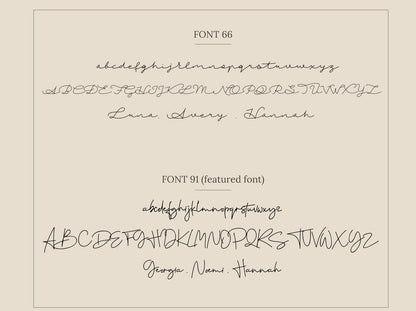 FONT 66
abcdefghijklmnopqrstuvwxyz
ABCDEFGHIJKLMNOPQRSTUVWXYZ
Luna Avery . Hannah
FONT 91 (featured font)
abcdefghijklmnopqrstuvwxyz
ABCDEFGHIJKLMNOPQRSTUVWXYZ
Georgia . Noemi . Hannah